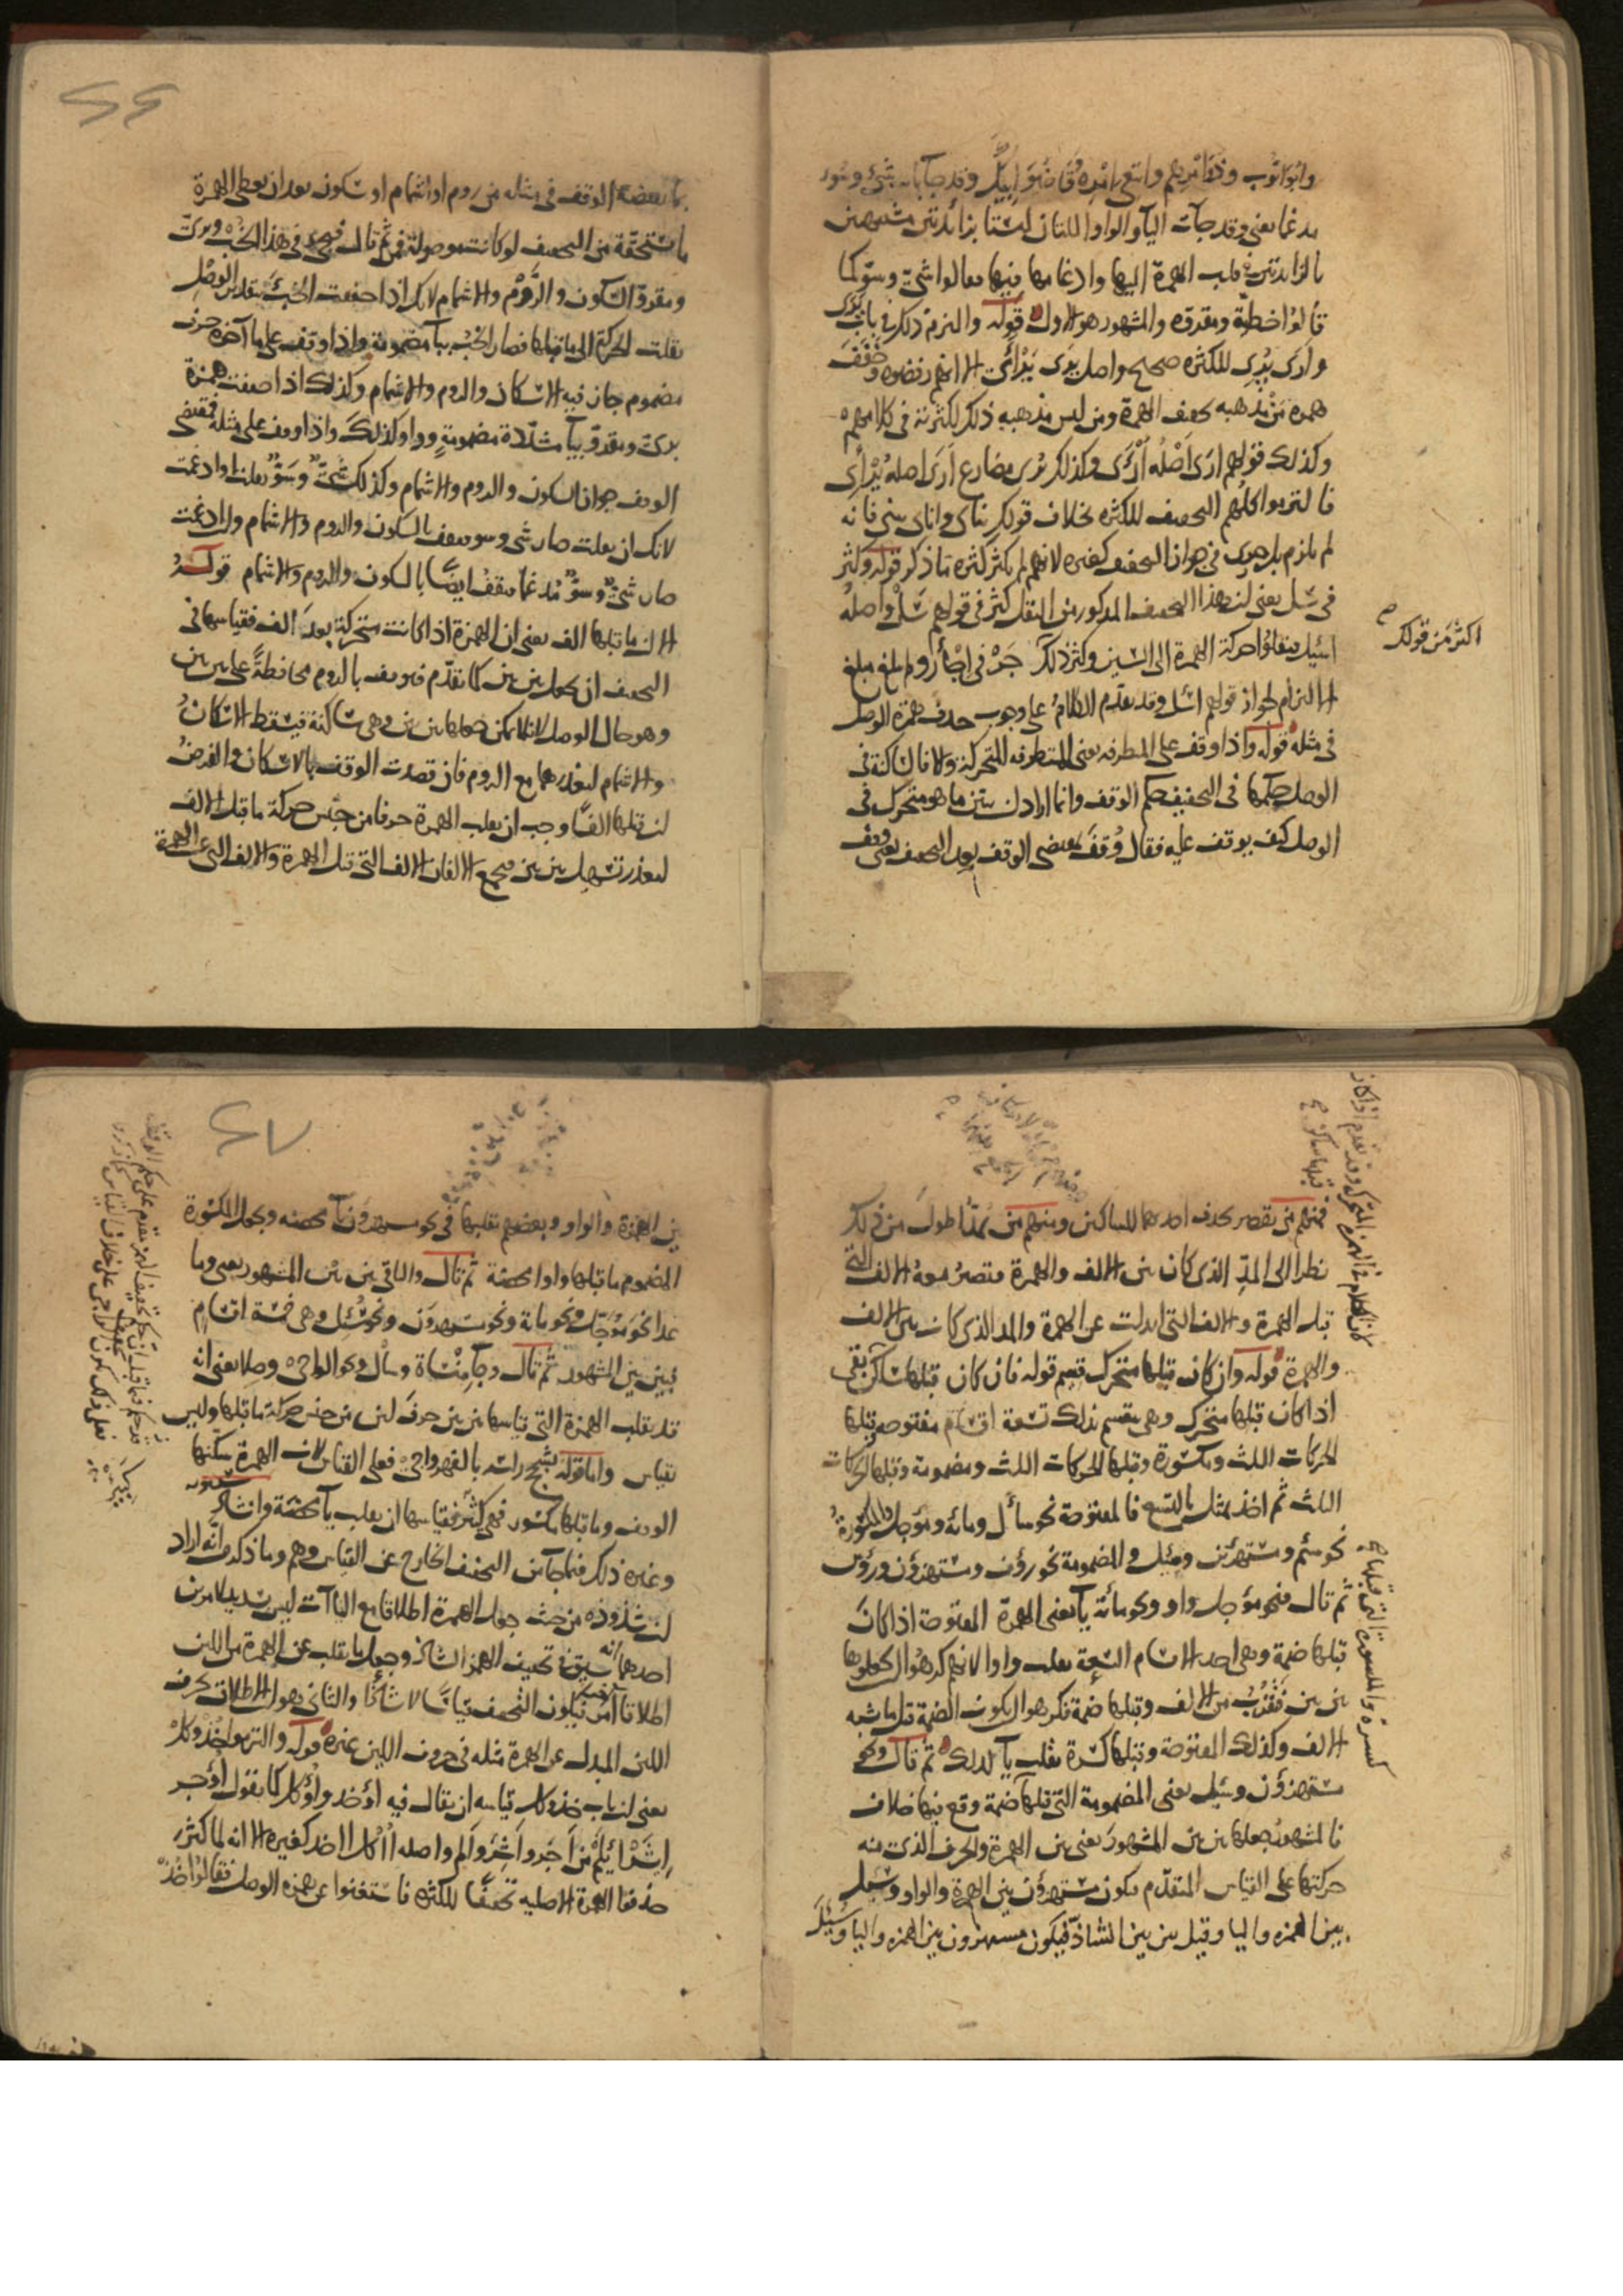 وابوايوب وذو امرهم وابتغي امره وقاضو ابيك وقد جا باب شيء وسوء
مدغما يعني وقد جات اليا والواو اللتان ليستا بزائدتين مشبهتين
بالزايدتين في قلب الهمزة اليها وادغامها فيها فقالوا شيّ وسوّ كما
قالوا خطيّة ومقروّه والمشهور هو الاول قوله والتزم ذلك في باب يرى
وارى يرى للكثره صحيح واصل يرى يرأى الا انهم رفضوه وخفف
همزه من مذهبه تخفيف الهمزة ومن ليس مذهبه ذلك لكثرته في كلامهم
وكذلك قولهم ارى اصله أرأى وكذلك يرى مضارع أرى اصله يرئي
فالتزموا كلهم التخفيف للكثره بخلاف قولك ينأى وانأى ينئي فانه
لم يلزم بل هو في جواز التخفيف كغيره لانهم لم يكثر كثرة ما ذكر قوله وكثر
في سل يعني ان هذا التخفيف المذكور من النقل كثر في قولهم سل واصله
اسئل فنقلوا حركة الهمزة الى السين وكثر ذلك جر في اجأر ولم يبلغ مبلغ
اكثر من قولك
الالتزام لجواز قولهم اسئل وقد تقدم الكلام على وجوب حذف همزة الوصل
في مثله قوله واذا وقف على المتطرفه يعني المتطرفه المتحركة والا فالساكنة في
الوصل حكمها في التخفيف حكم الوقف وانما اراد ان يبين ما هو متحرك في
الوصل كيف يوقف عليه فقال وقف بمقتضى الوقف بعد التخفيف يعني وقف
بما يقتضيه الوقف في مثله من روم او اشمام او سكون بعد ان يعطى الهمزة
ما تستحقه من التخفيف لو كانت موصولة فمن ثم قال فيجيء في هذا الخب وبرىّ
ومقروّ السكون والروم والاشمام لانك اذا خففت الخبء بتقدير الوصل
نقلت الحركة الى ما قبلها فصار الخب بباء مضمومة واذا وقف على ما آخره حرف
مضموم جاز فيه الاسكان والروم والاشمام وكذلك اذا خففت همزة
برىّ ومقروّ بياء مشدّدة مضمومة وواو كذلك واذا وقف على مثله فمقتضى
الوقف جواز السكون والروم والاشمام وكذلك شيّ وسوّ نقلت او ادغمت
لانك ان نقلت صار شي وسو فتقف بالسكون والروم والاشمام وان ادغمت
صار شيّ وسوّ مدغما فتقف ايضا بالسكون والروم والاشمام قوله
الا ان ما قبلها الف يعني ان الهمزة اذا كانت متحركة بعد الف فقياسها في
التخفيف ان تجعل بين بين كما تقدم فتوقف بالروم محافظة على بين بين
وهو حال الوصل لانها لا يمكن جعلها بين بين وهي ساكنة فيسقط الاسكان
والاشمام لتعذرهما مع الروم فان قصدت الوقف بالاسكان والغرض
ان قبلها الفا وجب ان يقلب الهمزة حرفا من جنس حركة ما قبل الالف
لتعذر تسهيل بين بين فيجتمع الالفان الالف التي قبل الهمزة والالف التي عن الهمزة
فمنهم من يقصر بحذف احدهما للساكنين ومنهم من يمدّ اطول من ذلك
نظرا الى المد الذي كان بين الالف والهمزة فتصير معه الالف التي
قبل الهمزة والالف التي ابدلت عن الهمزة والمد الذي كان بين الالف
والهمزة قوله وان كان قبلها متحرك قسيم قوله فان كان قبلها ساكن بقي
اذا كان قبلها متحرك وهي بتقسيم ذلك تسعة اقسام مفتوحه وقبلها
الحركات الثلث ومكسورة وقبلها الحركات الثلث ومضمومة وقبلها الحركات
الثلث ثم اخذ يمثل بالتسع فالمفتوحة نحو سأل ومائه ومؤجل والمكسورة
نحو سئم ومستهزئين وسئل والمضمومة نحو رؤف ومستهزؤن ورؤس
ثم قال فنحو مؤجل واو ونحو مائة ياء يعني الهمزة المفتوحة اذا كان
قبلها ضمة وهي احد الاقسام التسعة تقلب واوا لانهم كرهوا ان يجعلوها
بين بين فتقرب من الالف وقبلها ضمة فكرهوا ان يكون الضمة قبل ما شبه
الالف وكذلك المفتوحة وقبلها كسرة تقلب ياء لذلك ثم قال ونحو
مستهزؤن وسئل يعني المضمومة التي قبلها ضمة وقع فيها خلاف
فالمشهور جعلها بين بين المشهور يعني بين الهمزة والحرف الذي منه
حركتها على القياس المتقدم فيكون مستهزؤن بين الهمزة والواو وسئل
بين الهمزه واليا وقيل بين بين الشاذ فيكون مستهزون بين الهمزه واليا وسئل
بين الهمزة والواو وبعضهم يقلبها في نحو مستهزؤن ياء محضه ويجعل المكسورة
المضموم ما قبلها واوا محضة ثم قال والباقي بين بين المشهور يعني وما
عدا نحو مؤجل ونحو مائة ونحو مستهزؤن ونحو سئل وهي خمسة اقسام
فبين بين المشهور ثم قال وجاء منساة وسال ونحو الواجي وصلا يعني انه
قد يقلب الهمزة التي قياسها بين بين حرف لين من جنس حركة ما قبلها وليس
بقياس واما قوله يشجج راسه بالفهر واجي فعلى القياس لان الهمزة سكنها
الوقف وما قبلها مكسور فهي كبئر فقياسها ان يقلب ياء محضة وانشاد سيبويه
وغيره ذلك فيما جاء من التخفيف الخارج عن القياس وهم وما ذكر من انه اراد
ان شذوذه من حيث جعل الهمزة اطلاقا مع الياآت ليس بسديد لامرين
احدهما انه سيق في تخفيف الهمز الشاذ وجعل ما يقلب عن الهمزة من اللين
اطلاقا امر آخر فيكون التخفيف قياسا لا شاذا والثاني هو ان الاطلاق بحرف
اللين المبدل عن الهمزة مثله في حروف اللين غيره قوله والتزموا خذ وكل
يعني ان باب خذ وكل قياسه ان يقال فيه اؤخذ واؤكل كما تقول اؤجر
إيشر إيلم من أجر وأشر وألم واصله أأكل أأخذ كغيره الا انه لما كثر
حذفوا الهمزة الاصلية تخفيفا للكثره فاستغنوا عن همزه الوصل فقالوا خذ